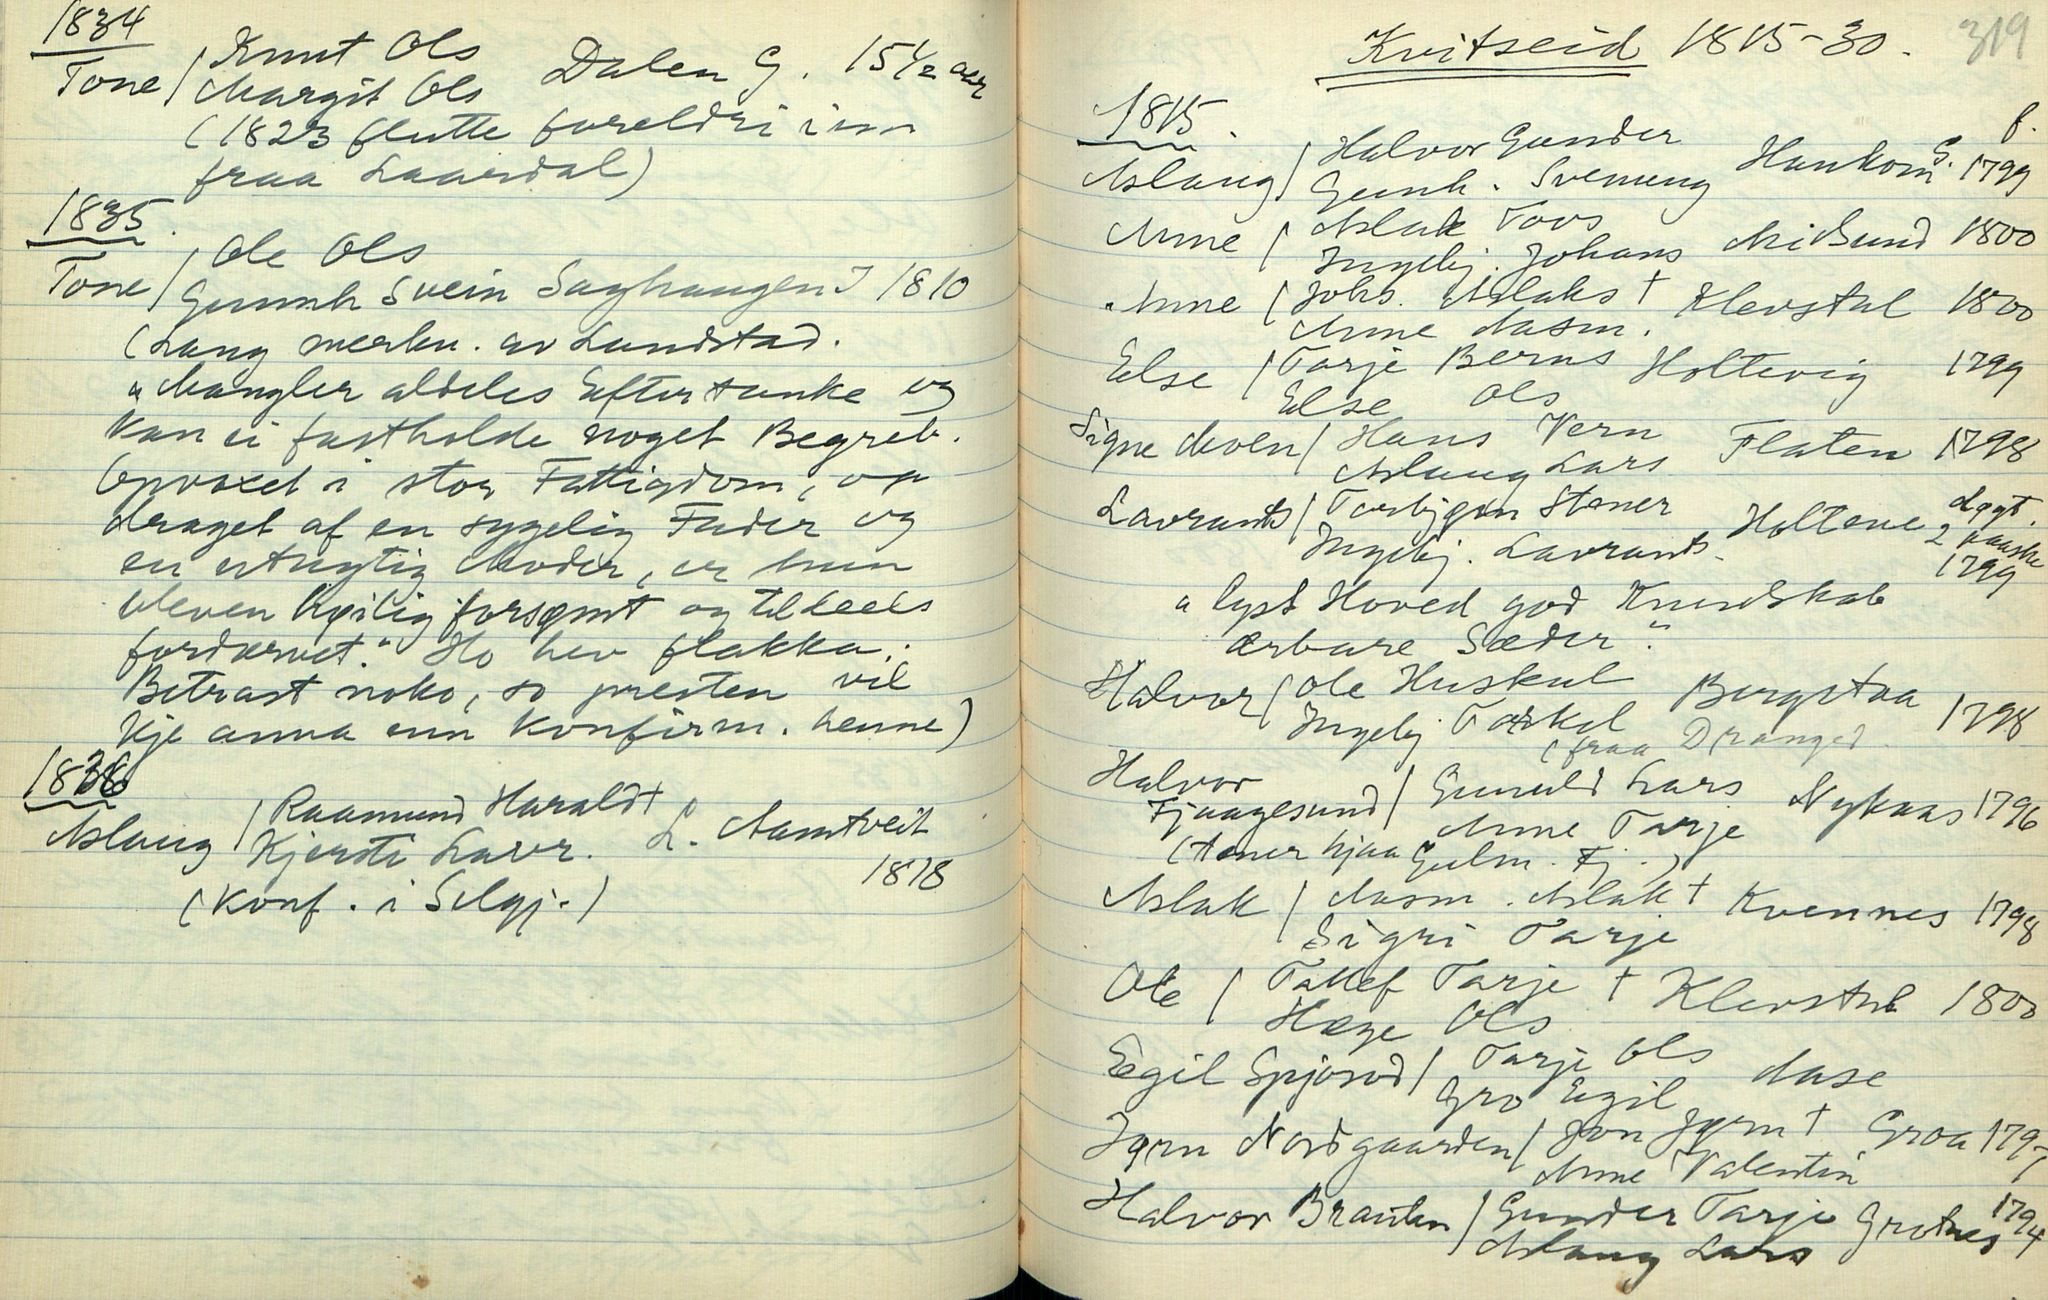 1834
Tone / Knut Ols
Margit Ols Dalen G. 15½ aar
(1823 flutte foreldri inn
fraa Laardal)
1835.
Tone / Ole Ols
Gunnh Svein Saghaugen J 1810
(Lang merkn. av Lundstad.
"Mangler aldeles Eftertanke og
Kan ei fastholde noget Begreb.
Opvoxet i stor Fattigdom, op
draget af en sygelig Fader og
en utugtig Moder, er hun
bleven høilig forsømt og tildeels
fordærvet." Ho hev flakka.
Betrast noko, so presten vil
kje anna enn konfirm. henne)
1836
Aslaug / Raamund Harald †
Kjersti Lavr. L. Aamtveit
1818
(Konf. i Selgj.)
319
Kvitseid 1815-30.
1815.
f.
Aslaug / Halvor Gunder
Gunh. Sveinung Haukom G. 1799
Anne / Aslak Tovs
Ingebj. Johans Misund 1800
Anne / Johs. Aslaks † Klevstul 1800
Anne Aasm.
Else / Tarje Berns Holtevig 1799
Else Ols
Signe Moen / Hans Vern
Aslaug Lars Flaten 1798
Lavrants / Torbjørn Stener
Ingebj. Lavrants. Holtane døgt.
2 paaske
1799
"lyst Hoved god Kundskab
ærbare Sæder."
Halvor / Ole Huskul
Ingebj Torkel Bergstaa 1798
(fraa Dranged
Halvor
Fjaagesund / Gunuld Lars
Anne Tarje Nykaas 1796
(tener hjaa Gulm. Fj.)
Aslak / Aasm. Aslak † Kvennes 1798
Sigri Tarje
Ole / Tallef Tarje † Klevstul 1800
Hæge Ols
Egil Spjosod / Tarje Ols Aase
Gro Egil
Jørn Nordgaarden / Jon Jørn † Groa 1797
Anne Valentin
Halvor Brauten / Gunder Tarje Grotnes 1794
Aslaug Lars